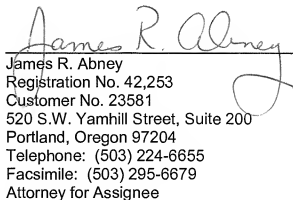 James R. Abney
James R. Abney
Registration No. 42,253
Customer No. 23581
520 S.W. Yamhill Street, Suite 200
Portland, Oregon 97204
Telephone:  (503) 224-6655
Facsimile:  (503) 295-6679
Attorney for Assignee